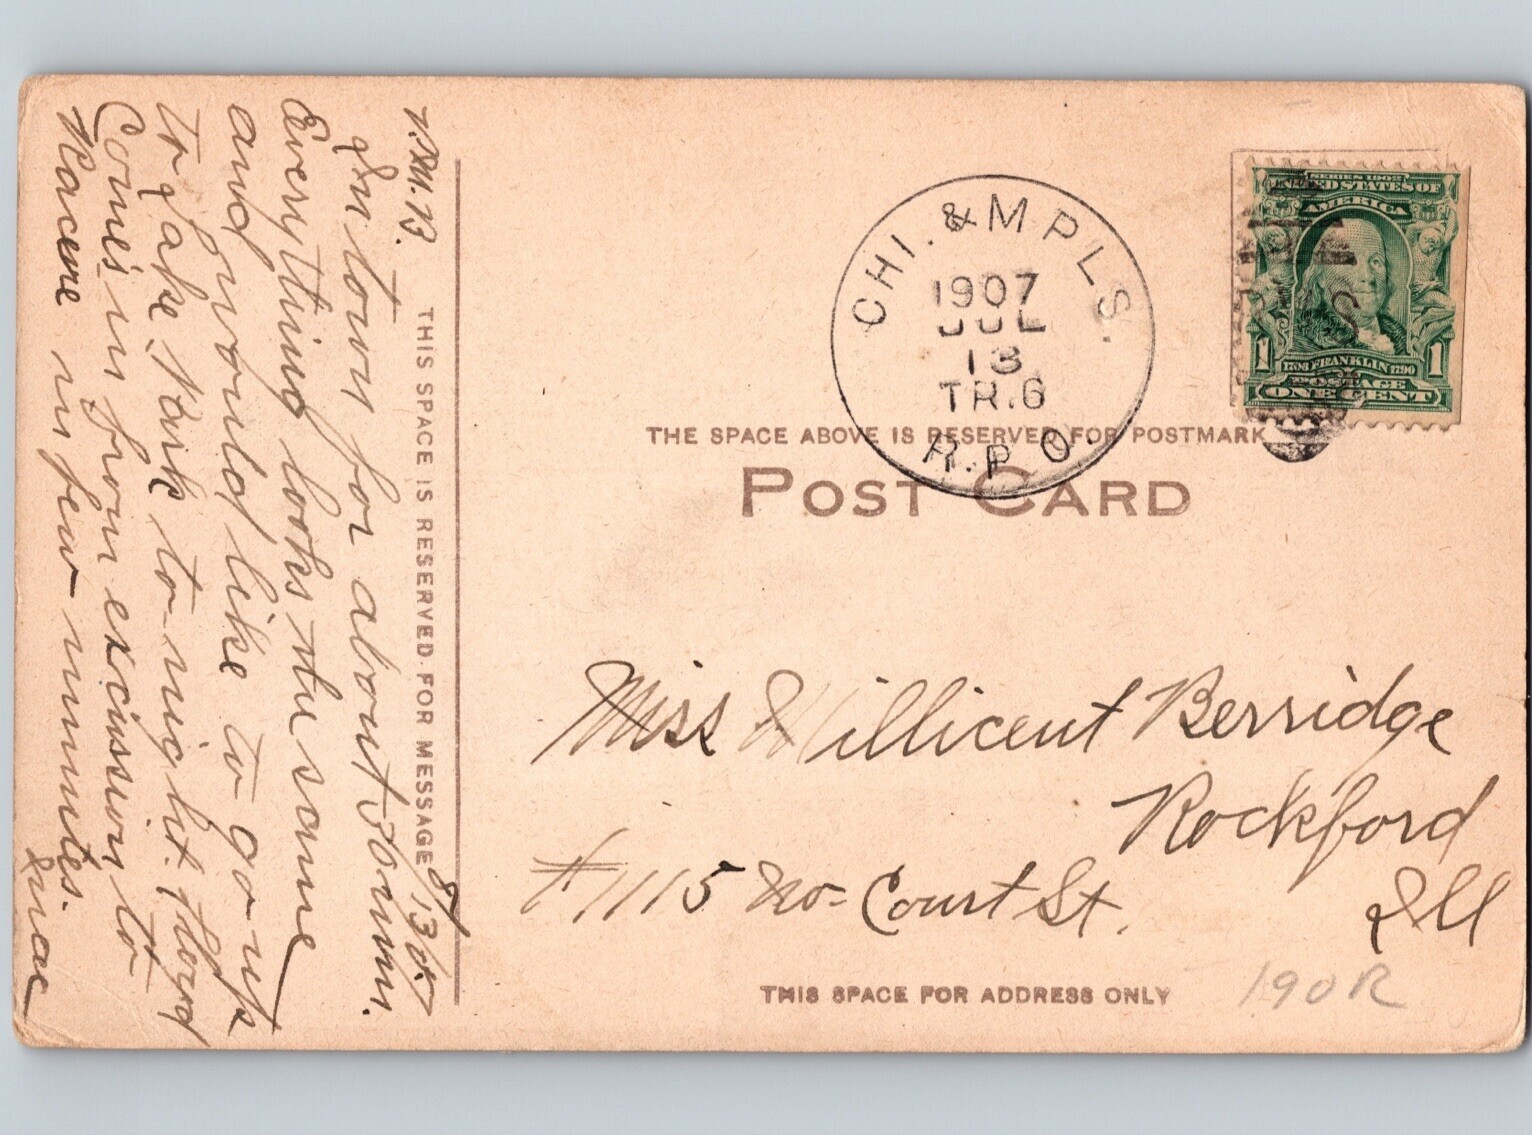 CHI. & MPLS.
1907
JUL
13
TR.6
R.P.O.
SERIES 1902
UNITED STATES OF
AMERICA
1 1706 FRANKLIN 1790 1
POSTAGE
ONE CENT
THE SPACE ABOVE IS RESERVED FOR POSTMARK
POST CARD
THIS SPACE IS RESERVED FOR MESSAGE
In town for about 30 min.
Everything looks the same
and would like to go up
to Lake Park to-night. Floyd
Comes in from excursion to
Racine in few minutes.
Mac
Miss Millicent Berridge
Rockford
#1115 No- Court St.
Ill
THIS SPACE FOR ADDRESS ONLY
190R